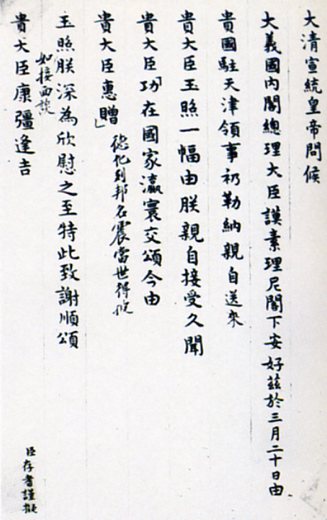 大清宣統皇帝問候
大義國內閣總理大臣謨素理尼閣下安好茲於三月二十日由
貴國駐天津領事勒納親自送來
貴大臣玉照一幅由朕親自接受久聞
貴大臣功「在國家瀛寰交頌今由
貴大臣惠贈」
化邦名震當世得
玉照朕深為欣慰之至特此致謝順頌
如接面談
貴大臣康彊逢吉
臣存耆謹擬